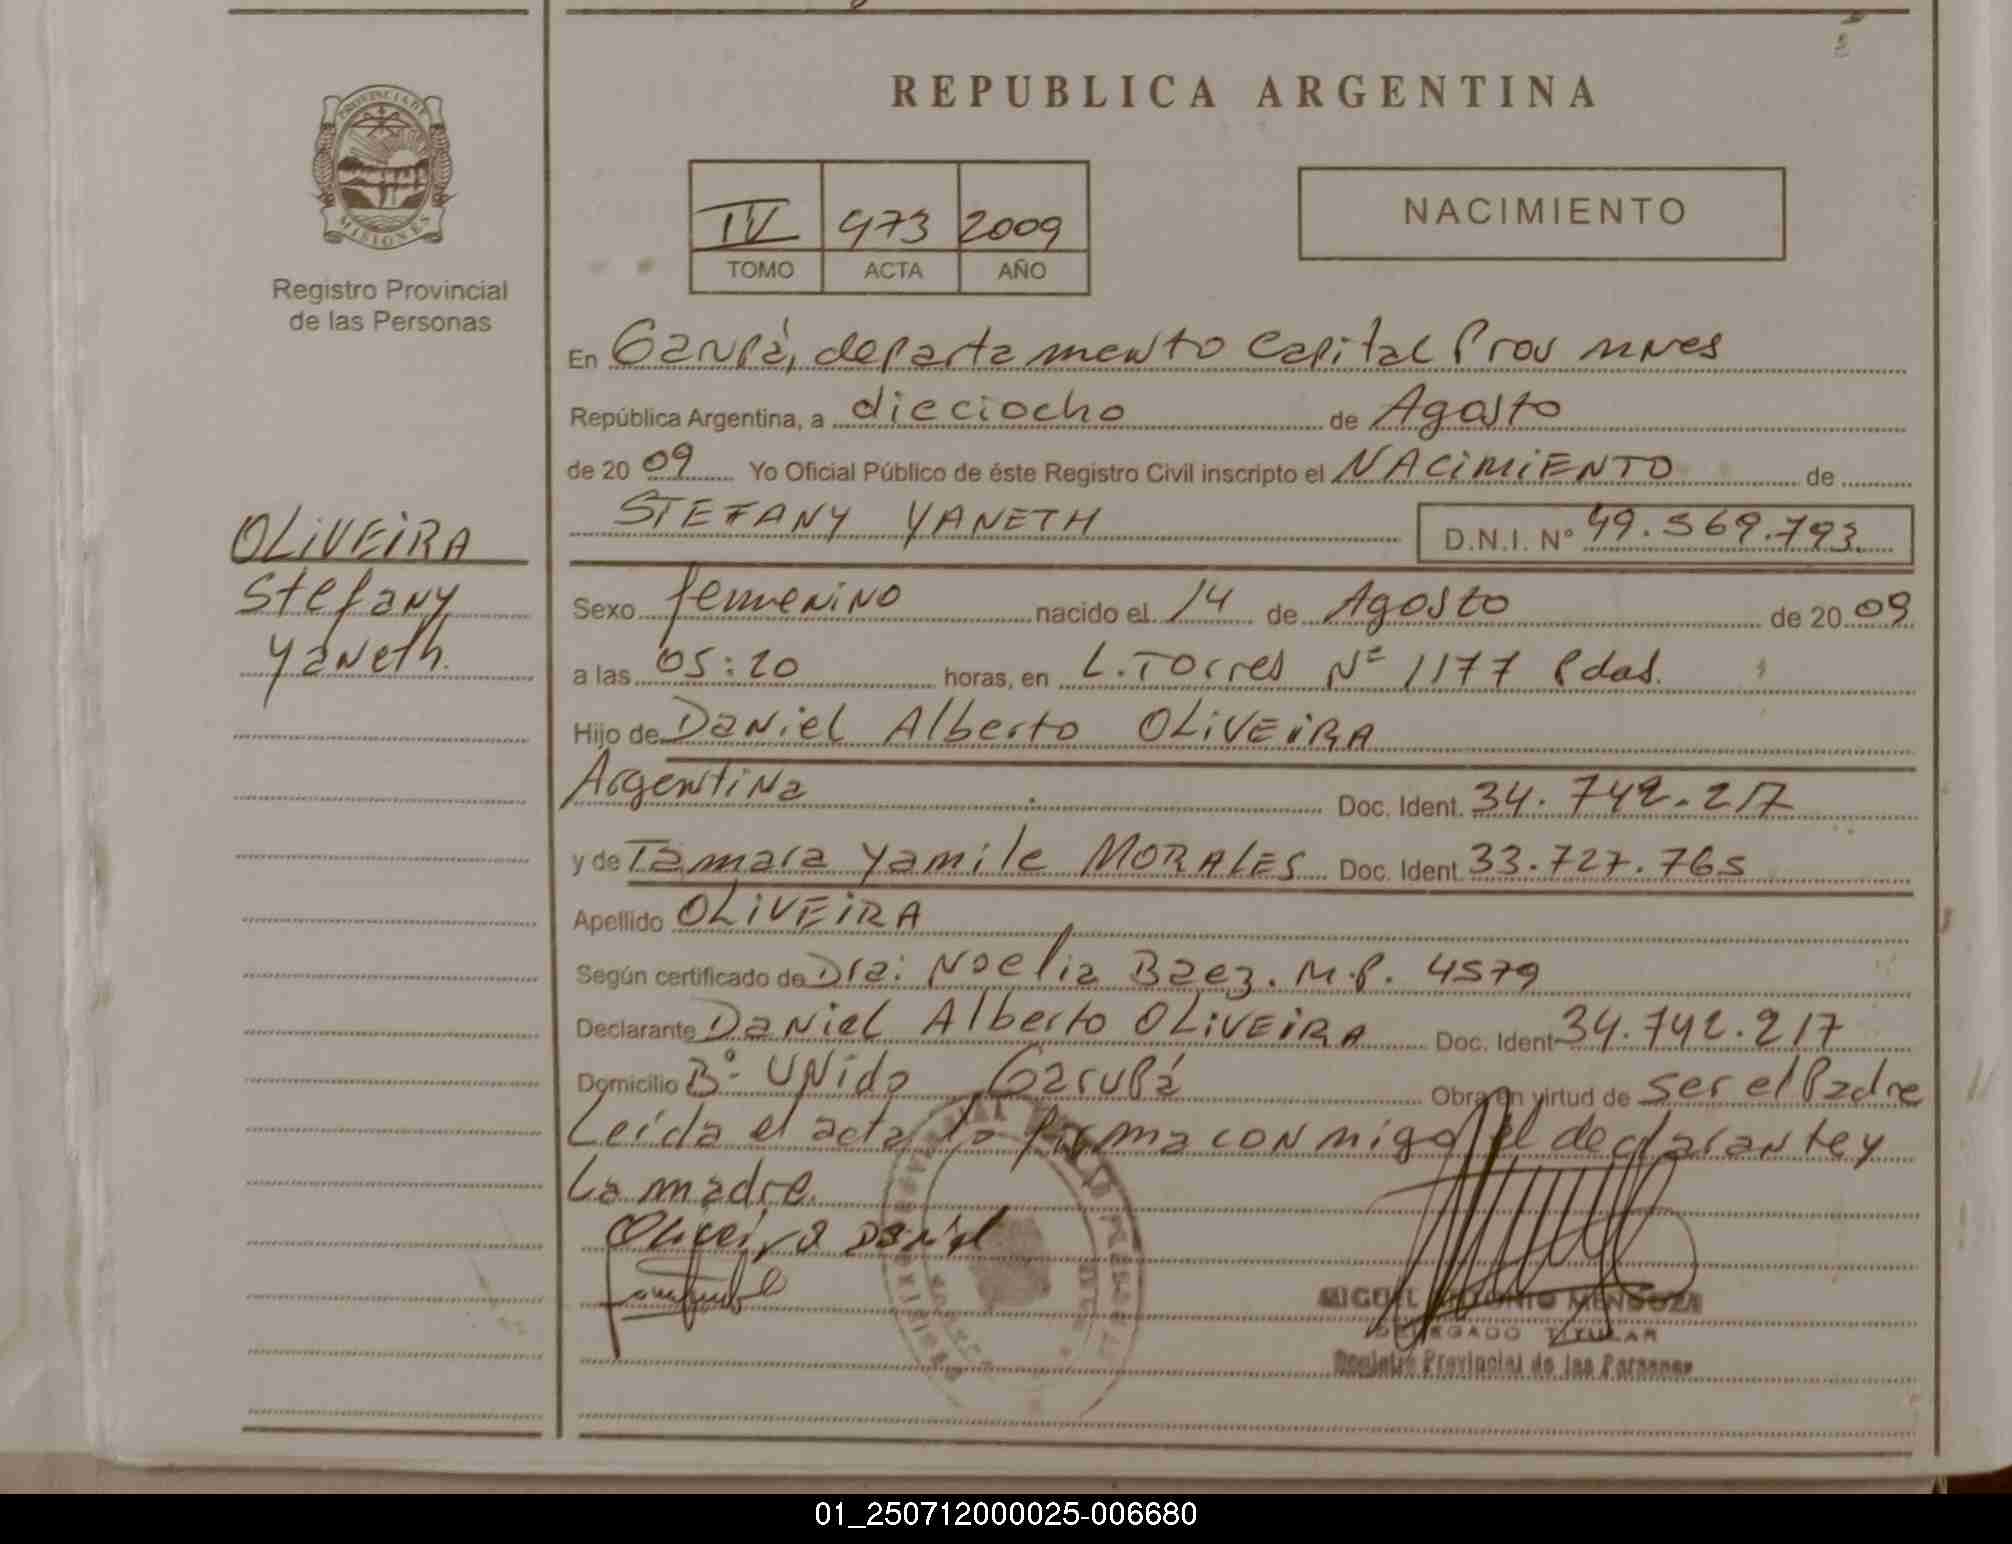 REPUBLICA ARGENTINA
PROVINCIA DE
MISIONES
Registro Provincial
de las Personas
IV 973 2009
TOMO ACTA AÑO
NACIMIENTO
En Garupá, departamento Capital Prov mnes
República Argentina, a dieciocho de Agosto
de 20 09 Yo Oficial Público de éste Registro Civil inscripto el NACIMIENTO de
STEFANY YANETH D.N.I. N° 49.569.793
OLIVEIRA
Stefany
Yaneth.
Sexo femenino nacido el 14 de Agosto de 20 09
a las 05:20 horas, en L. Torres Nº 1177 Pdas.
Hijo de Daniel Alberto OLIVEIRA
Argentina Doc. Ident. 34.742.217
y de Tamara Yamile MORALES Doc. Ident. 33.727.765
Apellido OLIVEIRA
Según certificado de Dra: Noelia Baez. M.P. 4579
Declarante Daniel Alberto OLIVEIRA Doc. Ident 34.742.217
Domicilio Bº Unido Garupá Obra en virtud de ser el Padre
Leída el acta la firma conmigo el declarante y
La madre.
Oliveira Daniel
MIGUEL ANTONIO MENDOZA
DELEGADO TITULAR
Registro Provincial de las Personas
01_250712000025-006680